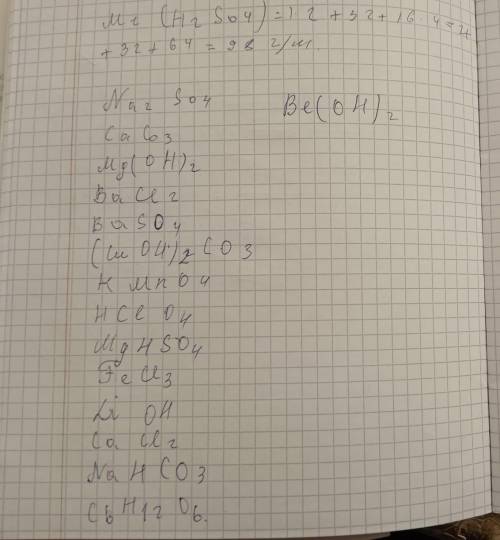 Mr (H2SO4) = 1·2 + 32 + 16·4 = 2
+ 32 + 64 = 98 г/м.
Na2SO4
Be(OH)2
CaCO3
Mg(OH)2
BaCl2
BaSO4
(CuOH)2CO3
KMnO4
HClO4
MgHSO4
FeCl3
LiOH
CaCl2
NaHCO3
C6H12O6.